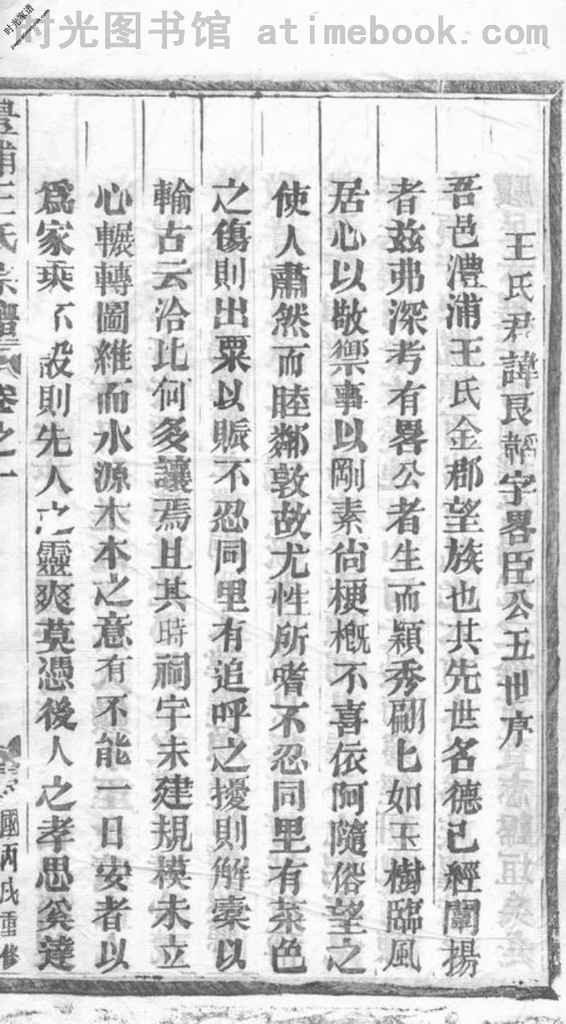 时光图书馆 atimebook.com
时光家谱
王氏君諱良韜字畧臣公五世序
吾邑澧浦王氏金郡望族也其先世名德已經闡揚
者茲弗深考有畧公者生而穎秀翩匕如玉樹臨風
居心以敬禦事以剛素尙梗槪不喜依阿隨俗望之
使人肅然而睦鄰敦故尤性所嗜不忍同里有菜色
之傷則出粟以賑不忍同里有追呼之擾則解囊以
輸古云洽比何多讓焉且其時祠宇未建規模未立
心輾轉圖維而水源木本之意有不能一日安者以
爲家乘不設則先人之靈爽莫憑後人之孝思奚達
澧浦王氏宗譜 卷之一 民國丙戌重修